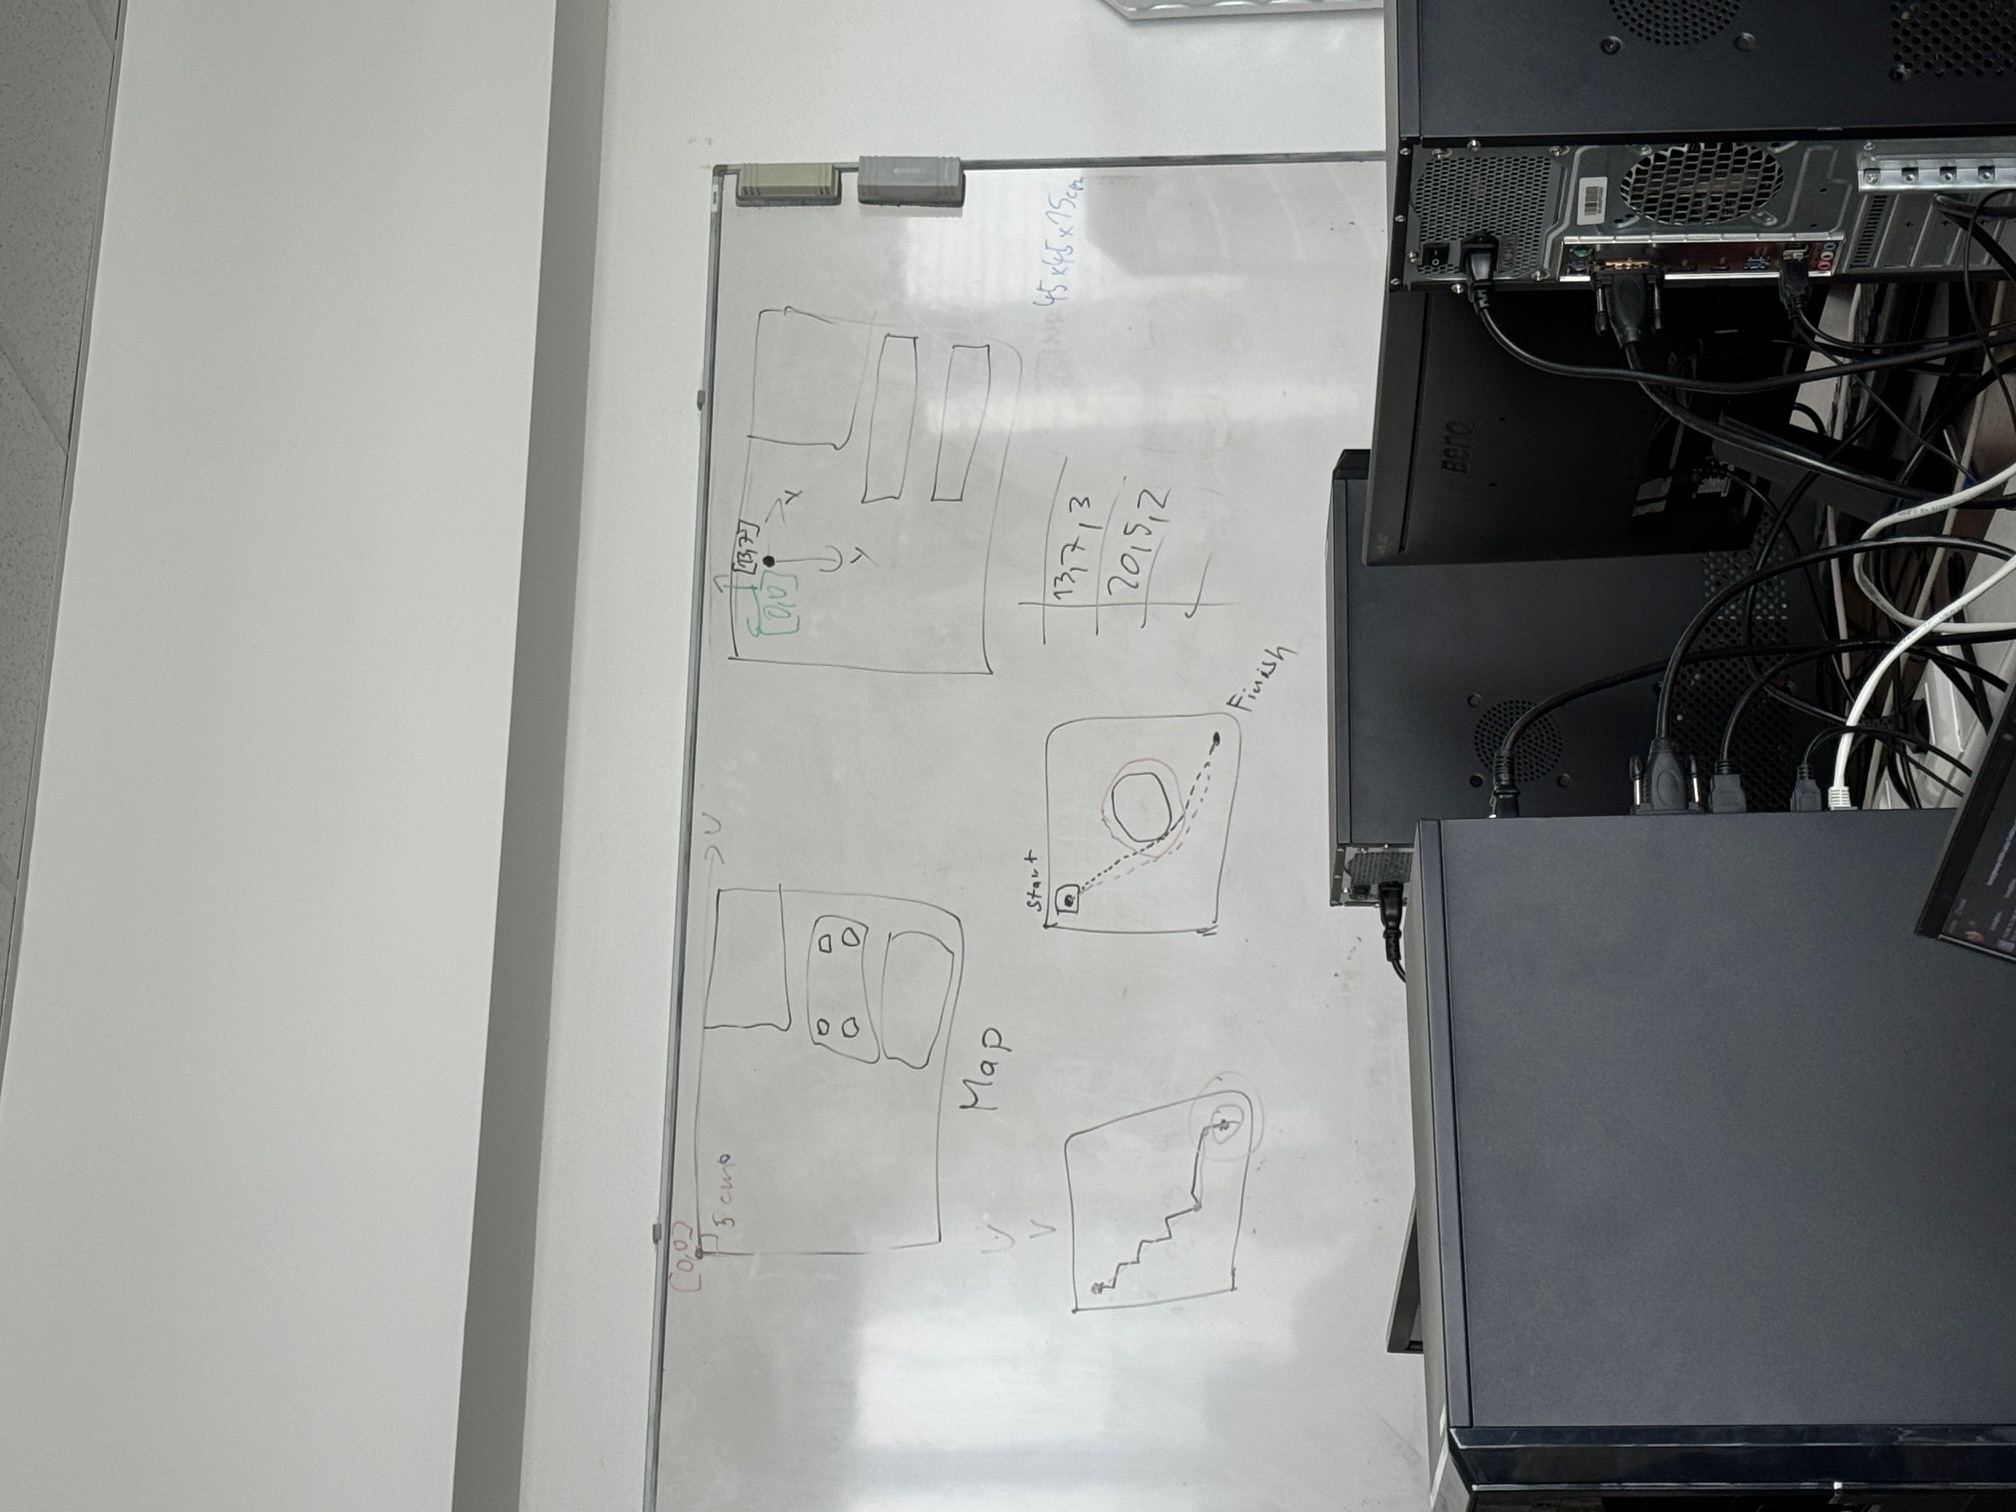 [0,0]
5 cm
U
Map
V
[13,7]
[0,0]
X
Y
Start
Finish
13,7,3
20,5,2
45x45x15cm
BenQ